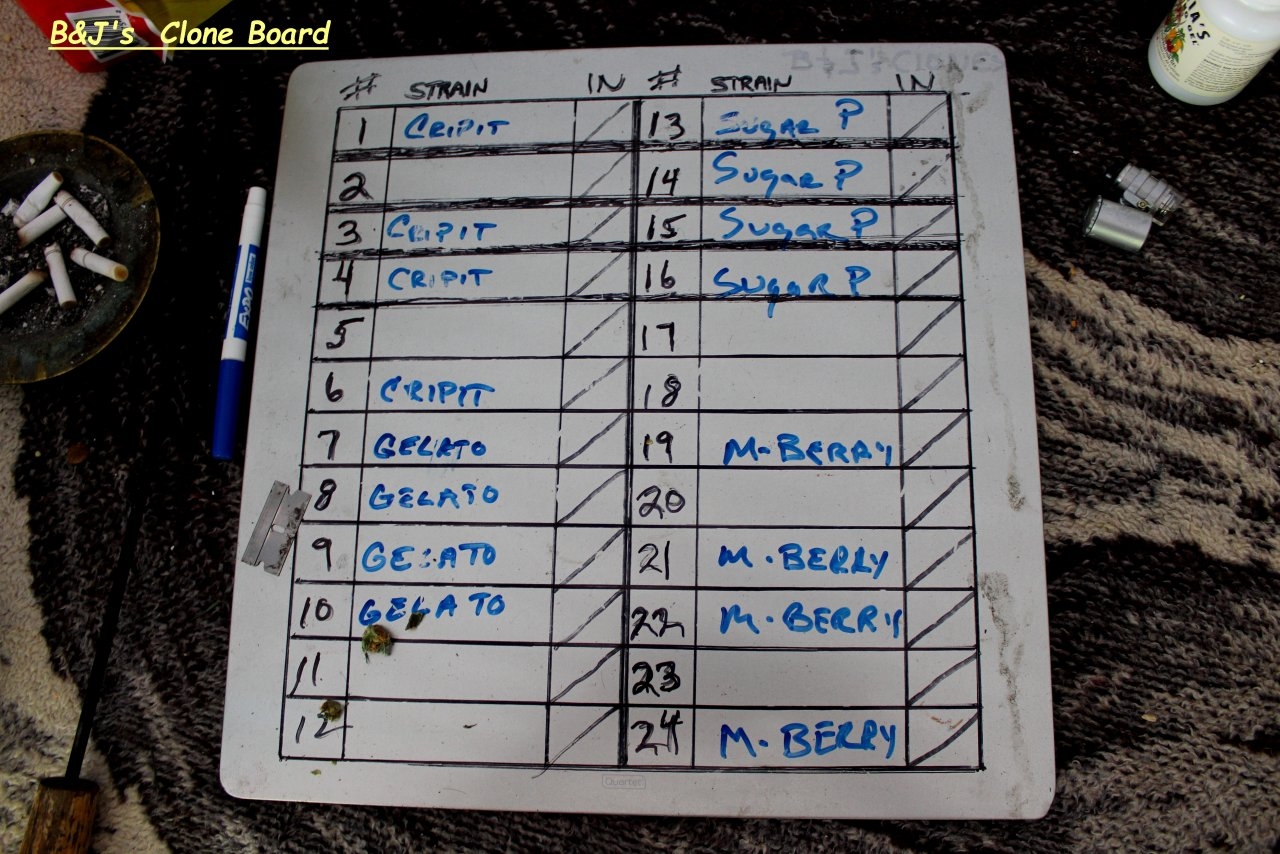 B&J's Clone Board
# STRAIN IN # STRAIN IN
1 CRIPIT 13 SUGAR P
2 14 SUGAR P
3 CRIPIT 15 SUGAR P
4 CRIPIT 16 SUGAR P
5 17
6 CRIPIT 18
7 GELATO 19 M-BERRY
8 GELATO 20
9 GELATO 21 M-BERRY
10 GELATO 22 M-BERRY
11 23
12 24 M-BERRY
Quartet
EXPO